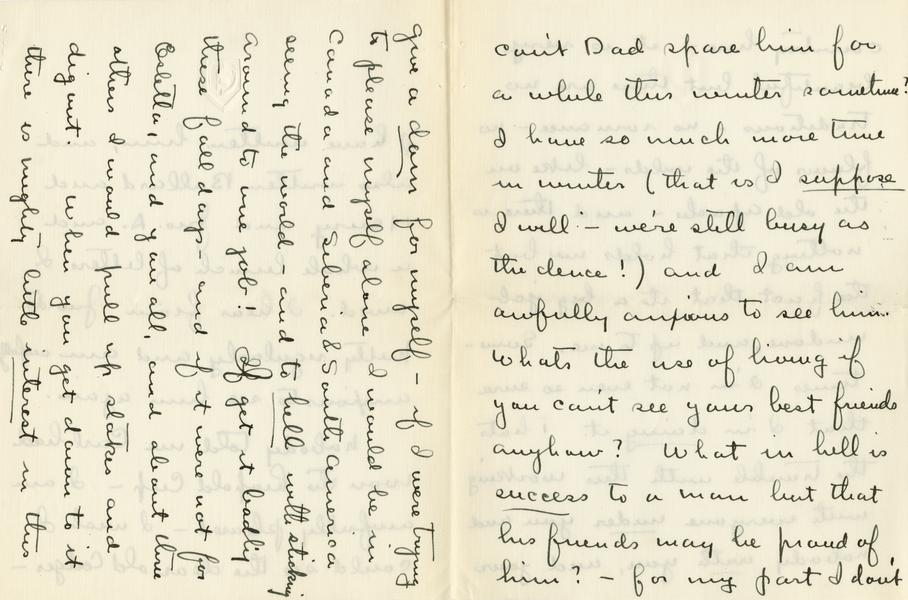 can't Dad spare him for
a while this winter sometime?
I have so much more time
in winter (that is I suppose
I will - we're still busy as
the dence!) and I am
awfully anxious to see him.
Whats the use of living if
you can't see your best friends
anyhow? What in hell is
success to a man but that
his friends may be proud of
him? - for my part I don't
give a damn for myself - if I were trying
to please myself alone I would be in
Canada and Siberia & South America
seeing the world - and to hell with sticking
around to one job! I get it badly
these fall days - and if it were not for
Estella, and you all, and about three
others I would pull up stakes and
dig out. When you get down to it
there is mighty little interest in this